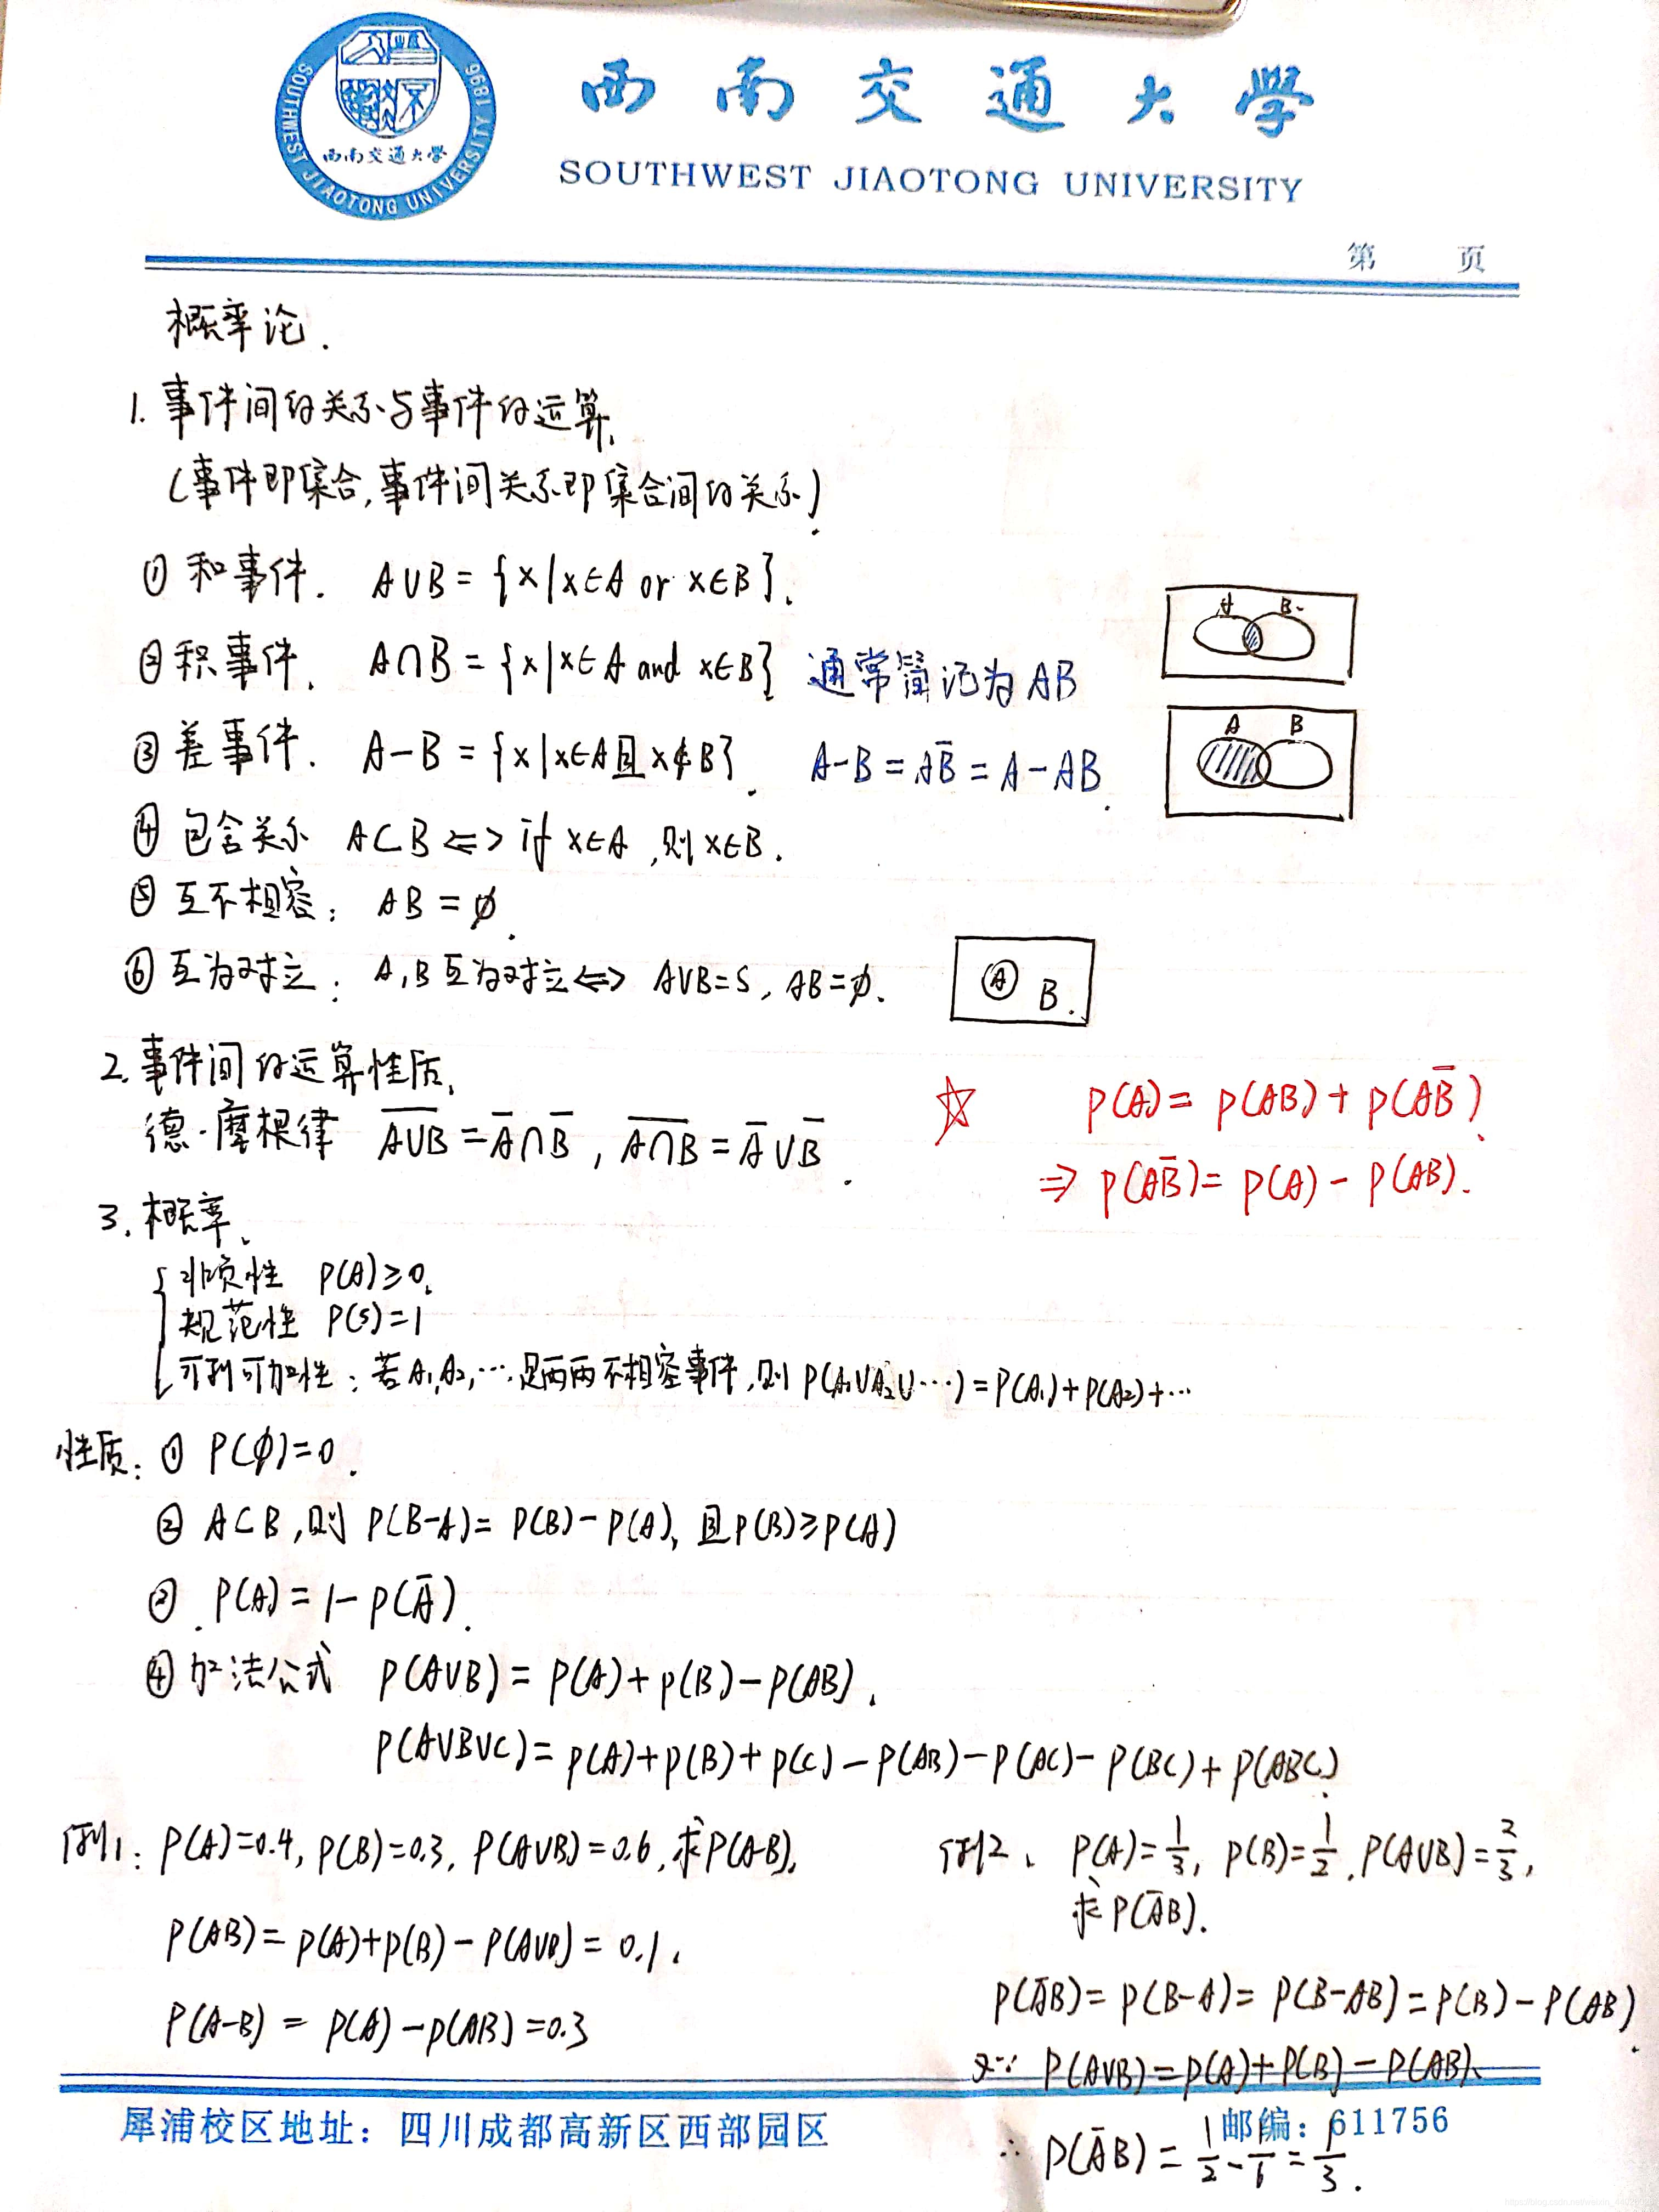 SOUTHWEST JIAOTONG UNIVERSITY 1896
西南交通大学
西南交通大學
SOUTHWEST JIAOTONG UNIVERSITY
第 页
概率论.
1. 事件间的关系与事件的运算.
(事件即集合,事件间关系即集合间的关系).
① 和事件. A∪B = {x|x∈A or x∈B}.
② 积事件. A∩B = {x|x∈A and x∈B} 通常简记为AB
A B
③ 差事件. A-B = {x|x∈A且x∉B}. A-B = AB̅ = A-AB.
A B
④ 包含关系 A⊂B <=> if x∈A,则x∈B.
⑤ 互不相容: AB = ∅.
⑥ 互为对立: A,B互为对立<=> A∪B=S, AB=∅.
A B.
2. 事件间的运算性质.
德·摩根律 \overline{A∪B} = A̅∩B̅, \overline{A∩B} = A̅∪B̅.
☆ P(A) = P(AB) + P(AB̅).
⇒ P(AB̅) = P(A) - P(AB).
3. 概率.
非负性 P(A)≥0.
规范性 P(S)=1
可列可加性: 若A₁,A₂,…是两两不相容事件,则 P(A₁∪A₂∪…)=P(A₁)+P(A₂)+…
性质: ① P(∅)=0.
② A⊂B,则 P(B-A)= P(B)-P(A), 且P(B)≥P(A)
③ P(A) = 1-P(A̅).
④ 加法公式 P(A∪B) = P(A)+P(B)-P(AB).
P(A∪B∪C) = P(A)+P(B)+P(C)-P(AB)-P(AC)-P(BC)+P(ABC).
例1: P(A)=0.4, P(B)=0.3, P(A∪B)=0.6,求P(A-B).
P(AB) = P(A)+P(B)-P(A∪B) = 0.1.
P(A-B) = P(A)-P(AB) = 0.3
例2、 P(A)=1/3, P(B)=1/2, P(A∪B)=2/3,
求P(A̅B).
P(A̅B) = P(B-A) = P(B-AB) = P(B)-P(AB).
又∵ P(A∪B) = P(A)+P(B)-P(AB).
∴ P(A̅B) = 1/2 - 1/6 = 1/3.
犀浦校区地址: 四川成都高新区西部园区
邮编: 611756